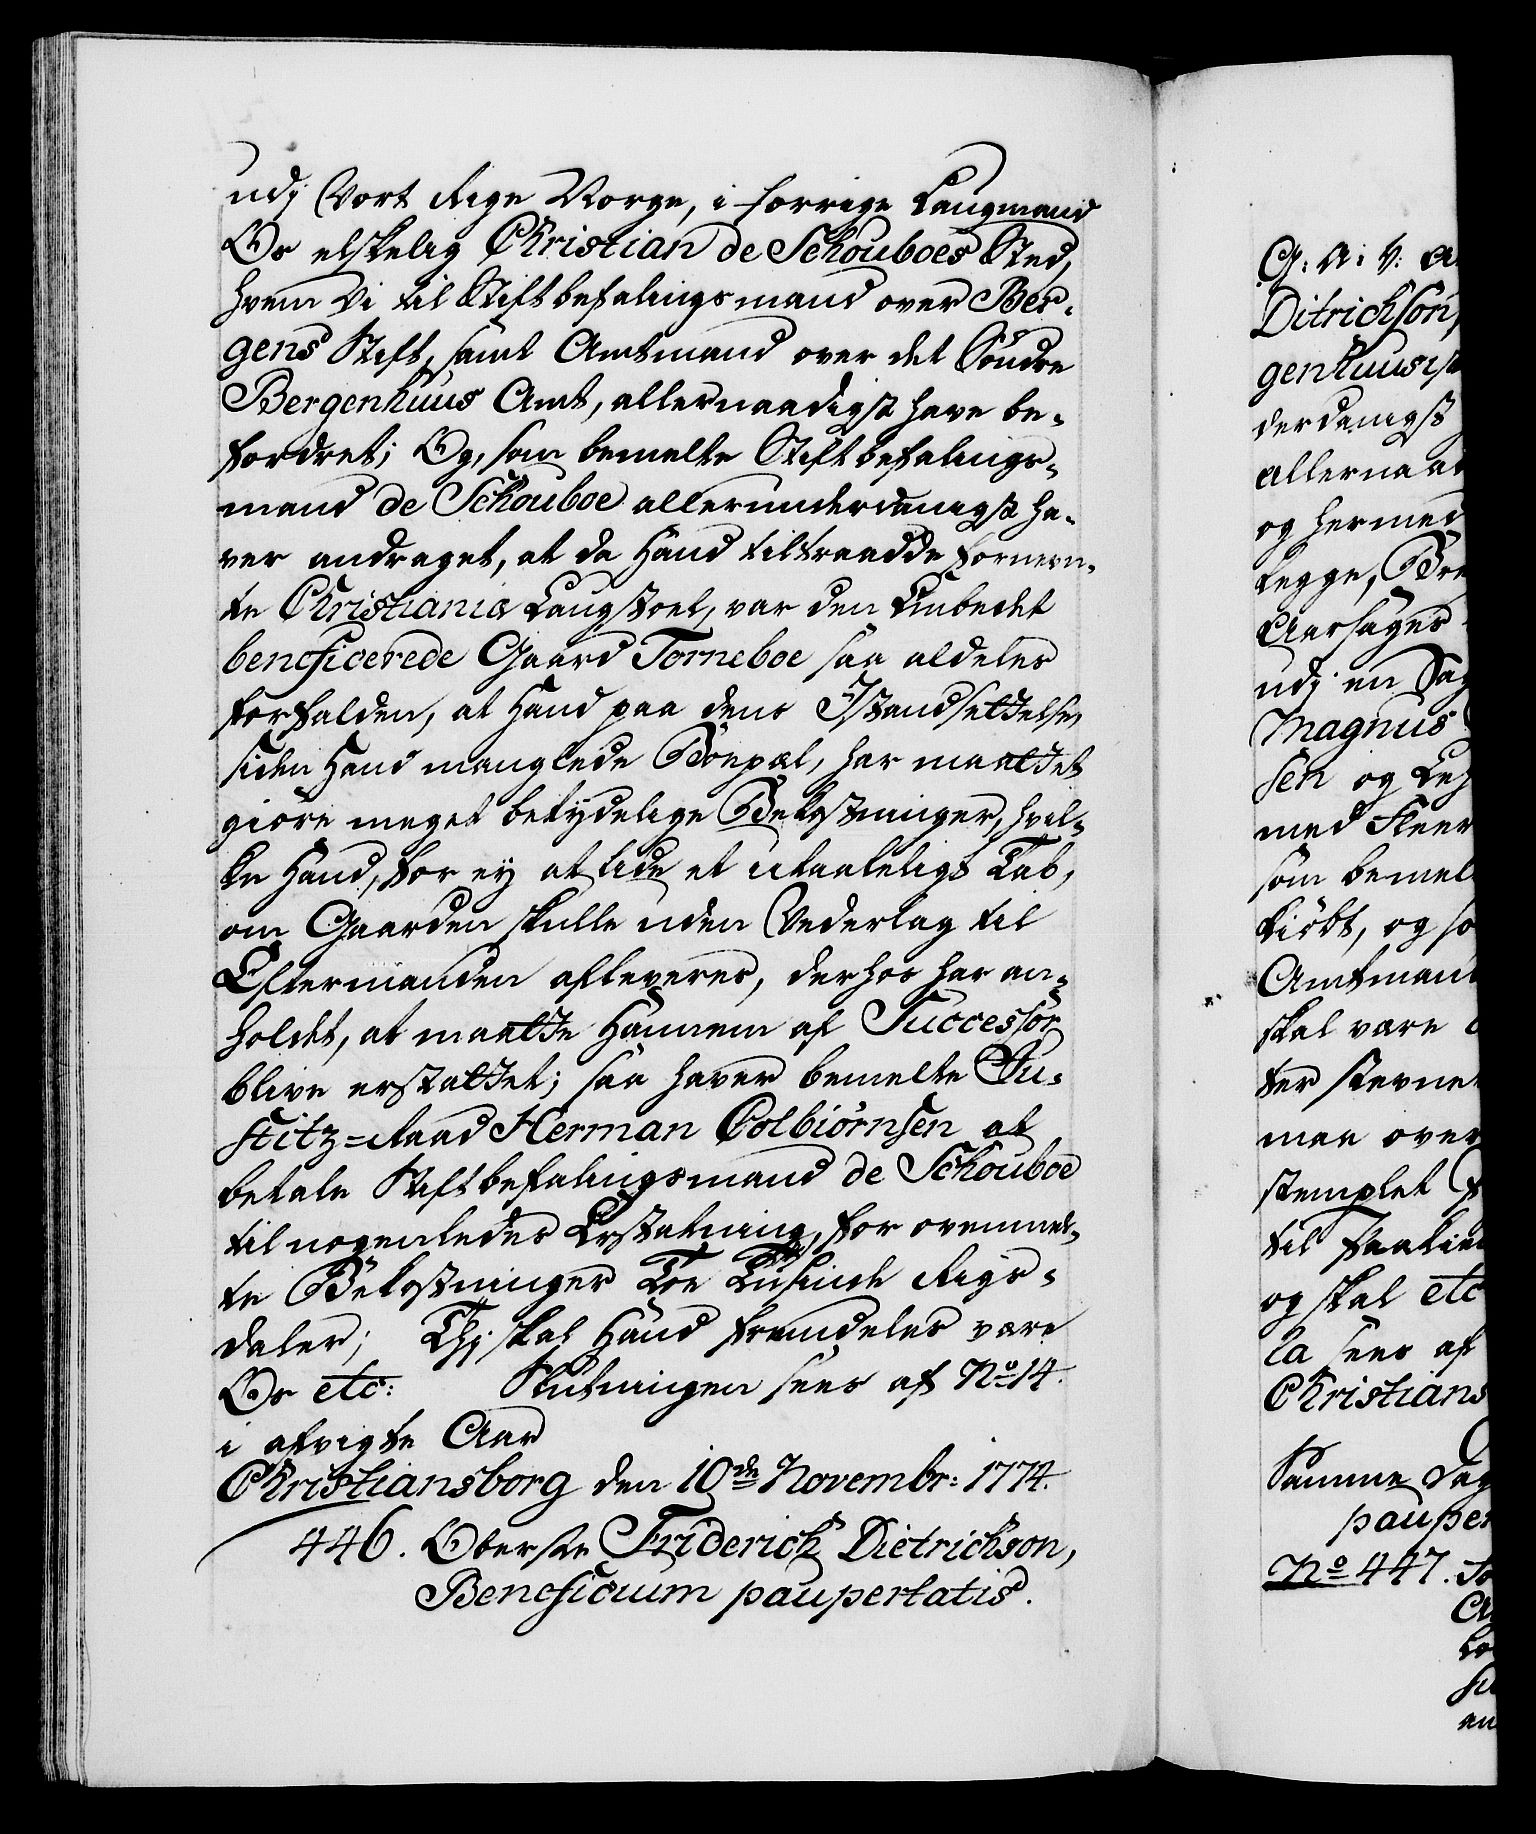 udj Vort Rige Norge, i forrige Laugmand
Os elskelig Christian de Schouboes Sted,
hvem Vi til Stiftbefalingsmand over Ber-
gens Stift, samt Amtmand over det Söndre
Bergenhuus Amt, allernaadigst have be-
fordret; Og, som bemelte Stiftbefalings-
mand de Schouboe allerunderdanigst ha-
ver andraget, at da Hand tiltraadde forneven-
te Christiania Laugstoel, var den Embedet
beneficerede Gaard Torneboe saa aldeles
forfalden, at Hand paa dens Istandsettelse,
siden Hand manglede Böepæl, har maattet
giöre meget betydelige Bekostninger, hvil-
ke Hand, for ey at lide et utaaleligt Tab,
om Gaarden skulle uden Vederlag til
Eftermanden afleveres, derhos har an-
holdt, at maatte Hannem af Successor
blive erstattet; saa haver bemelte Ju-
stitz=Raad Herman Colbiörnsen at
betale Stiftbefalingsmand de Schouboe
til nogenledes Erstatning, for ovenmel-
te Bekostninger Toe Tusinde Rigs-
daler; Thj skal Hand fremdeles være
Os etc: Slutningen sees af No 14.
i afvigte Aar
Christiansborg den 10de Novembr: 1774.
446. Oberste Friderich Dietrichson,
Beneficium paupertatis.
G: A: V: A
Ditrichson,
genhuusist
derdanigst
allernaad
og hermed
legge,
Aarsager
udj en Sag
Magnus
sen og
med Fleer
som bemel
kiöbt, og so
Amtmand
skal være
ter stevne
maa over
stemplet P
til
og skal etc
la sees af
Christians
Samme Dag
pauper
No 447.